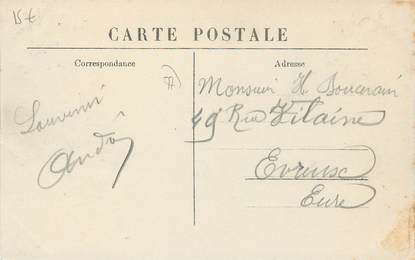 15€
CARTE POSTALE
Correspondance
Adresse
Souvenir
André
Monsieur H
49 Rue Vilaine
Evreux
Eure